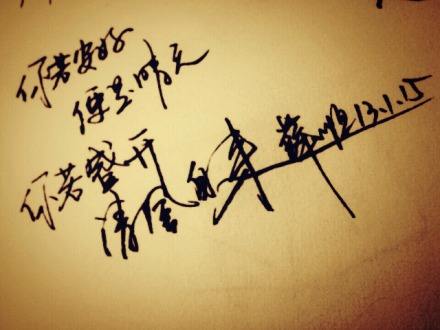 你若安好
便是晴天
你若盛开
清风自来 13.1.15